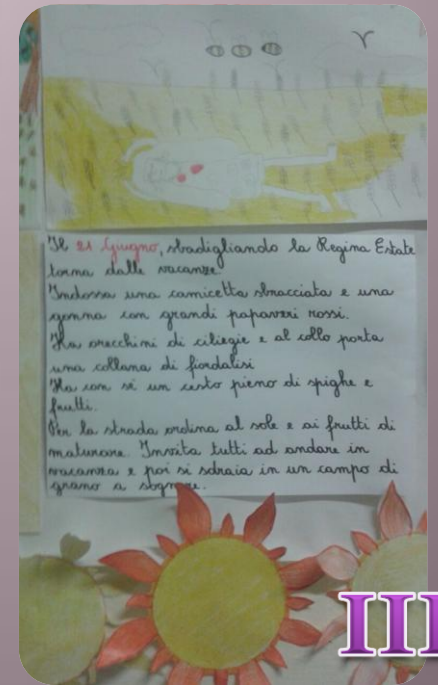 Il 21 Giugno, sbadigliando la Regina Estate
torna dalle vacanze.
Indossa una camicetta sbracciata e una
gonna con grandi papaveri rossi.
Ha orecchini di ciliegie e al collo porta
una collana di fiordalisi
Ha con sé un cesto pieno di spighe e
frutti.
Per la strada ordina al sole e ai frutti di
maturare. Invita tutti ad andare in
vacanza e poi si sdraia in un campo di
grano a sognare.
III